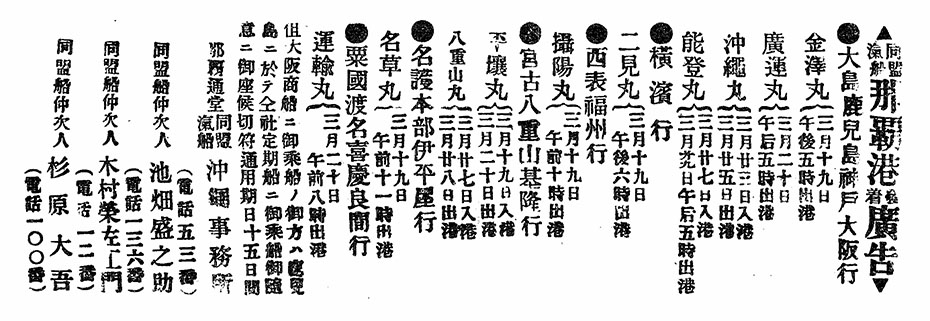 ▲同盟汽船那覇港発着廣告▼
●大島鹿兒島神戸大阪行
金澤丸{三月十九日午後五時出港
廣運丸{三月二十日午后五時出港
沖繩丸{三月廿三日入港三月廿五日出港
能登丸{三月廿七日入港三月卅日午后五時出港
●橫濱行
二見丸{三月十九日午後六時出港
●西表福州行
攝陽丸{三月十九日午前十時出港
●宮古八重山基隆行
平壤丸{三月十九日入港三月二十日出港
八重山丸{三月廿七日入港三月廿八日出港
●名護本部伊平屋行
名草丸{三月十九日午前十一時出港
●粟國渡名喜慶良間行
運輸丸{三月二十日午前八時出港
但大阪商船ニ御乘船ノ御方ハ
島ニ於テ仝社定期船ニ御乘船御隨
意ニ御座候切符通用期日十五日間
那覇通堂同盟汽船沖繩事務所
(電話五三番)
同盟船仲次人池畑盛之助
(電話一三六番)
同盟船仲次人木村榮左工門
(電話一二番)
同盟船仲次人杉原大吾
(電話一〇〇番)